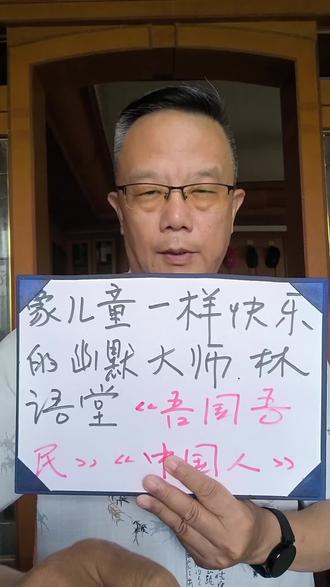 象儿童一样快乐
的幽默大师.林
语堂《吾国吾
民》《中国人》